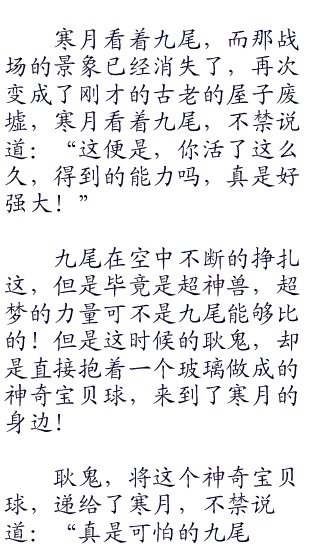 寒月看着九尾，而那战
场的景象已经消失了，再次
变成了刚才的古老的屋子废
墟，寒月看着九尾，不禁说
道：“这便是，你活了这么
久，得到的能力吗，真是好
强大！”
九尾在空中不断的挣扎
这，但是毕竟是超神兽，超
梦的力量可不是九尾能够比
的！但是这时候的耿鬼，却
是直接抱着一个玻璃做成的
神奇宝贝球，来到了寒月的
身边！
耿鬼，将这个神奇宝贝
球，递给了寒月，不禁说
道：“真是可怕的九尾